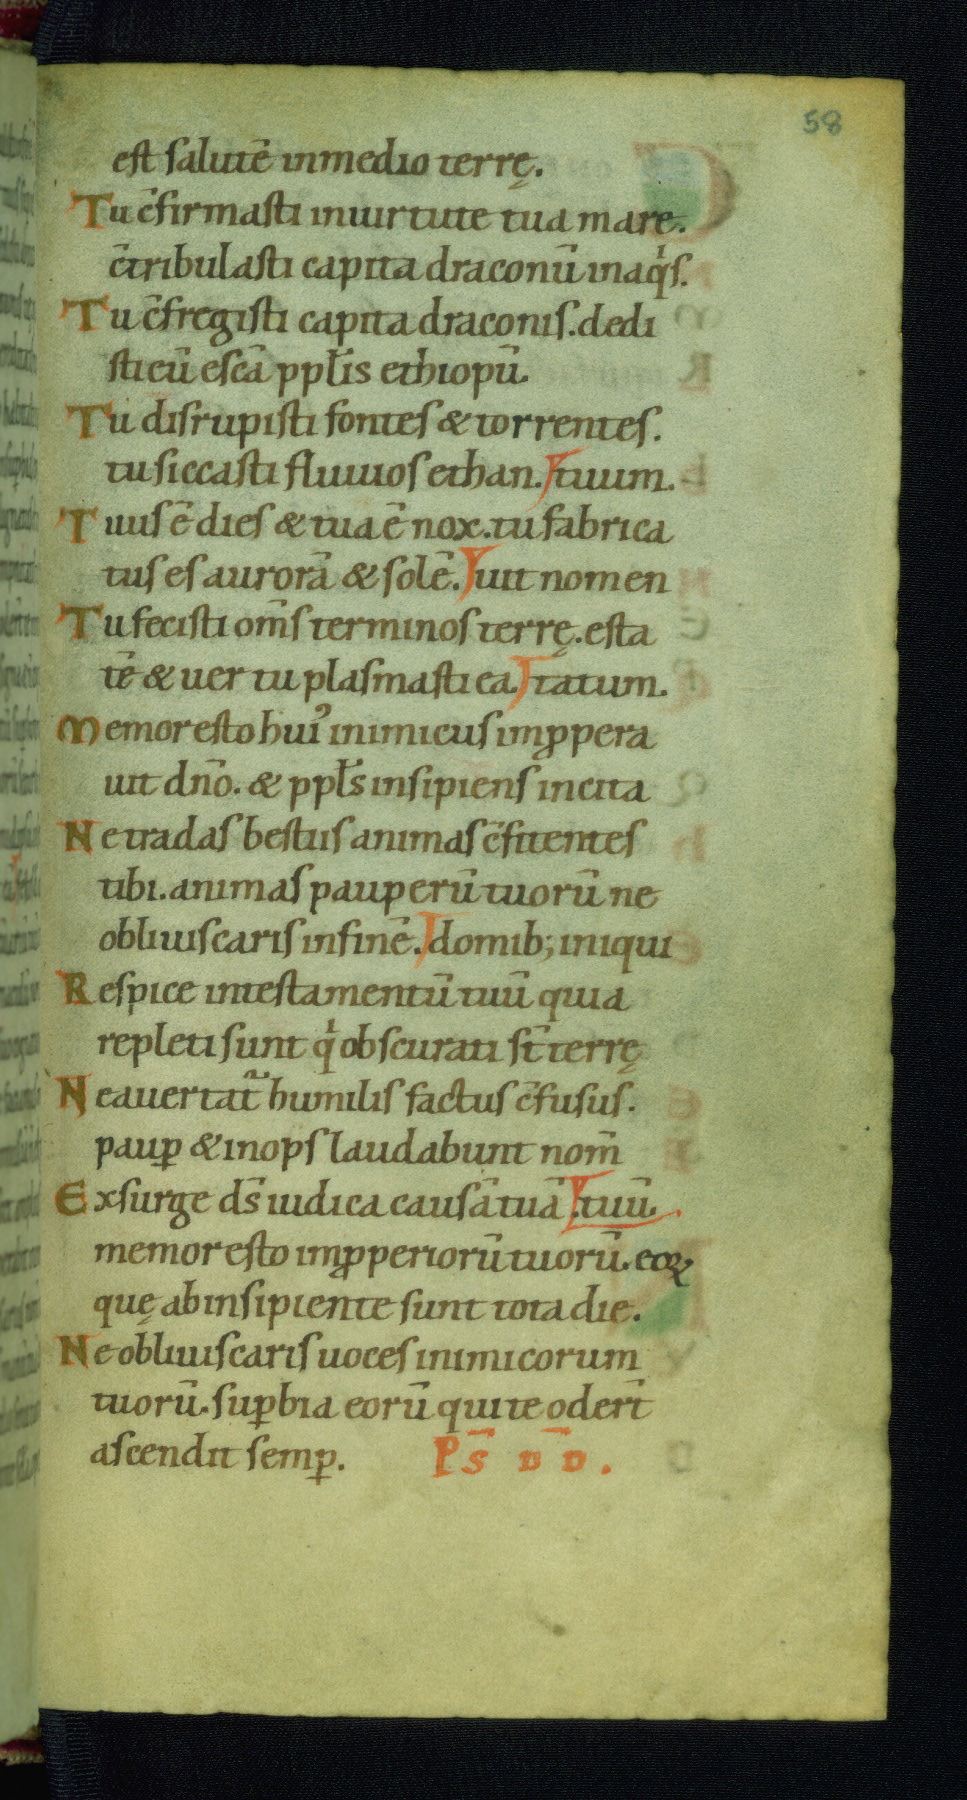 58
est salutē in medio terrę.
Tu c̄firmasti in uirtute tua mare.
c̄tribulasti capita draconū in aqͥs.
Tu c̄fregisti capita draconis. dedi
sti eū escā pplīs ethiopū.
Tu disrupisti fontes & torrentes.
tu siccasti fluuios ethan. tuum.
Tuus ē dies & tua ē nox. tu fabrica
tus es aurorā & solē. uit nomen
Tu fecisti om̄s terminos terrę. esta
tē & uer tu plasmasti ea. tatum.
Memor esto huiꝰ inimicus imꝓpera
uit dn̄o. & ppl̄s insipiens incita
Ne tradas bestiis animas c̄fitentes
tibi. animas pauperū tuorū ne
obliuiscaris in finē. domib; iniqui
Respice in testamentū tuū quia
repleti sunt qͥ obscurati st̄ terrę
Ne auertat᷑ humilis factus c̄fusus.
paup̱ & inops laudabunt nom̄
Exsurge ds̄ iudica causā tuā tuū.
memor esto imꝓperiorū tuorū. eoꝝ
quę ab insipiente sunt tota die.
Ne obliuiscaris uoces inimicorum
tuorū. suꝑbia eorū qui te odert̄
ascendit semꝑ. Ps̄ DD̄.